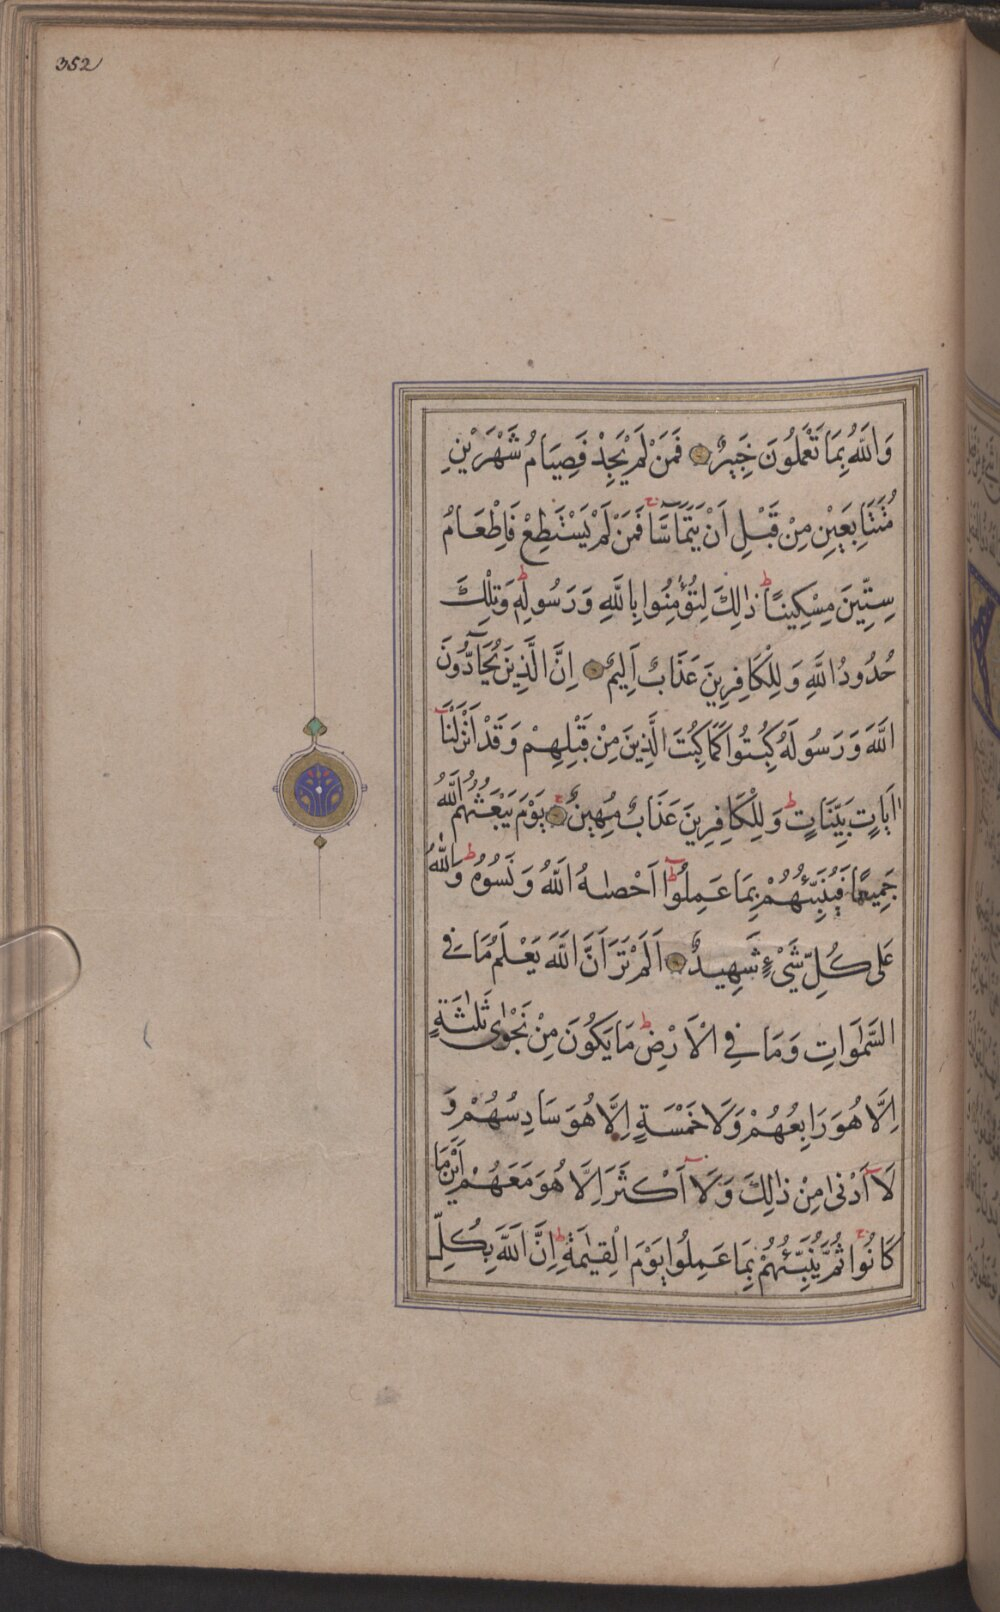 352
وَاللّٰهُ بِمَا تَعْمَلُونَ خَبِيرٌ فَمَنْ لَمْ يَجِدْ فَصِيَامُ شَهْرَيْنِ
مُتَتَابِعَيْنِ مِنْ قَبْلِ اَنْ يَتَمَآسَّا ج فَمَنْ لَمْ يَسْتَطِعْ فَاِطْعَامُ
سِتِّينَ مِسْكِينًا ط ذٰلِكَ لِتُؤْمِنُوا بِاللّٰهِ وَرَسُولِهِ ط وَتِلْكَ
حُدُودُ اللّٰهِ وَلِلْكَافِرِينَ عَذَابٌ اَلِيمٌ اِنَّ الَّذِينَ يُحَآدُّونَ
اللّٰهَ وَرَسُولَهُ كُبِتُوا كَمَا كُبِتَ الَّذِينَ مِنْ قَبْلِهِمْ وَقَدْ اَنْزَلْنَآ
اٰيَاتٍ بَيِّنَاتٍ ط وَلِلْكَافِرِينَ عَذَابٌ مُهِينٌ ج يَوْمَ يَبْعَثُهُمُ اللّٰهُ
جَمِيعًا فَيُنَبِّئُهُمْ بِمَا عَمِلُوٓا ط اَحْصٰىهُ اللّٰهُ وَنَسُوهُ ط وَاللّٰهُ
عَلٰى كُلِّ شَيْءٍ شَهِيدٌ اَلَمْ تَرَ اَنَّ اللّٰهَ يَعْلَمُ مَا فِي
السَّمٰوَاتِ وَمَا فِي الْاَرْضِ ط مَا يَكُونُ مِنْ نَجْوٰى ثَلٰثَةٍ
اِلَّا هُوَ رَابِعُهُمْ وَلَا خَمْسَةٍ اِلَّا هُوَ سَادِسُهُمْ وَ
لَآ اَدْنٰى مِنْ ذٰلِكَ وَلَآ اَكْثَرَ اِلَّا هُوَ مَعَهُمْ اَيْنَ مَا
كَانُوا ج ثُمَّ يُنَبِّئُهُمْ بِمَا عَمِلُوا يَوْمَ الْقِيٰمَةِ ط اِنَّ اللّٰهَ بِكُلِّ